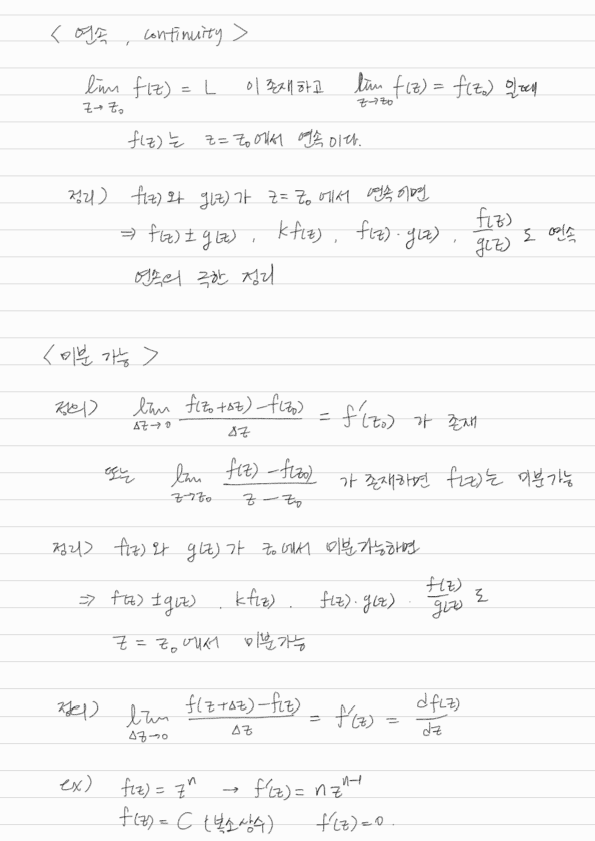 < 연속 , continuity >
lim_{z→z₀} f(z) = L 이 존재하고 lim_{z→z₀} f(z) = f(z₀) 일때
f(z)는 z=z₀에서 연속이다.
정리) f(z)와 g(z)가 z=z₀에서 연속이면
⇒ f(z)±g(z), kf(z), f(z)·g(z), f(z)/g(z) 도 연속
연속의 극한 정리
< 미분 가능 >
정의) lim_{Δz→0} (f(z₀+Δz)-f(z₀))/Δz = f′(z₀) 가 존재
또는 lim_{z→z₀} (f(z)-f(z₀))/(z-z₀) 가 존재하면 f(z)는 미분가능
정리) f(z)와 g(z)가 z₀에서 미분가능하면
⇒ f(z)±g(z), kf(z), f(z)·g(z), f(z)/g(z) 도
z = z₀에서 미분가능
정의) lim_{Δz→0} (f(z+Δz)-f(z))/Δz = f′(z) = df(z)/dz
ex) f(z) = zⁿ → f′(z) = nzⁿ⁻¹
f(z) = C (복소상수) f′(z)=0.